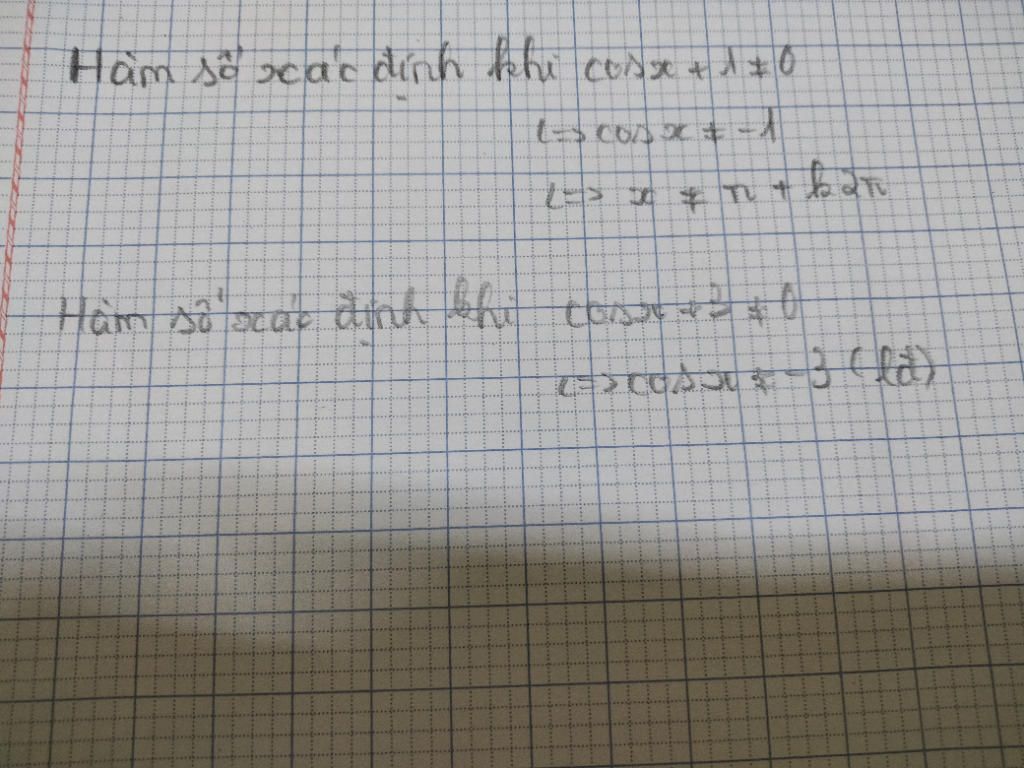 Hàm số xác định khi cosx + 1 ≠ 0
<=> cosx ≠ -1
<=> x ≠ π + k2π
Hàm số xác định khi cosx + 3 ≠ 0
<=> cosx ≠ -3 (lđ)